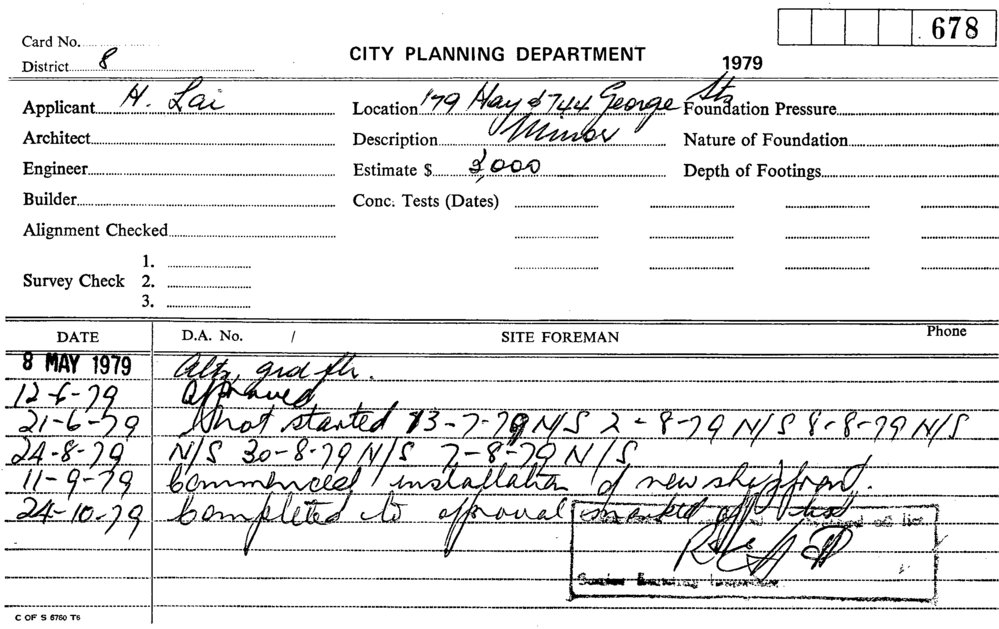 678
Card No.
District 8
CITY PLANNING DEPARTMENT
1979
Applicant H. Lai
Location 179 Hay & 744 George Sts
Foundation Pressure
Architect
Description Minor
Nature of Foundation
Engineer
Estimate $ 2,000
Depth of Footings
Builder
Conc. Tests (Dates)
Alignment Checked
Survey Check 1. 2. 3.
DATE D.A. No. / SITE FOREMAN Phone
8 MAY 1979 Altn grd flr.
12-6-79 Approved
21-6-79 Not started 13-7-79 N/S 2-8-79 N/S 8-8-79 N/S
24-8-79 N/S 30-8-79 N/S 7-8-79 N/S
11-9-79 Commenced installation of new shopfront.
24-10-79 Completed to approval marked off list
Senior Building Inspector
C OF S 6760 T6